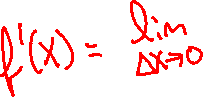 f'(x) = lim
Δx→0